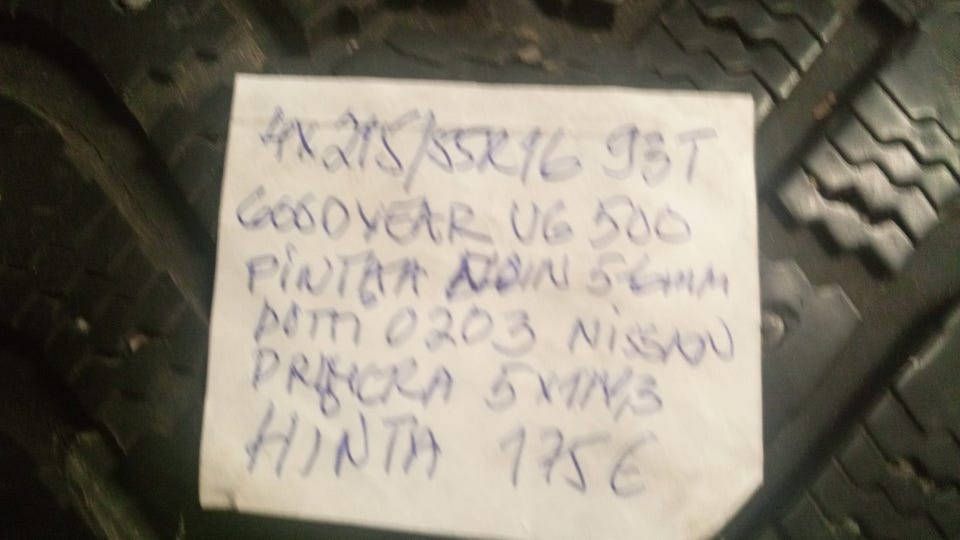 4X 215/55R16 93T
GOODYEAR UG 500
PINTAA NOIN 5-6mm
DOTTI 0203 NISSAN
5X114,3
HINTA 175€